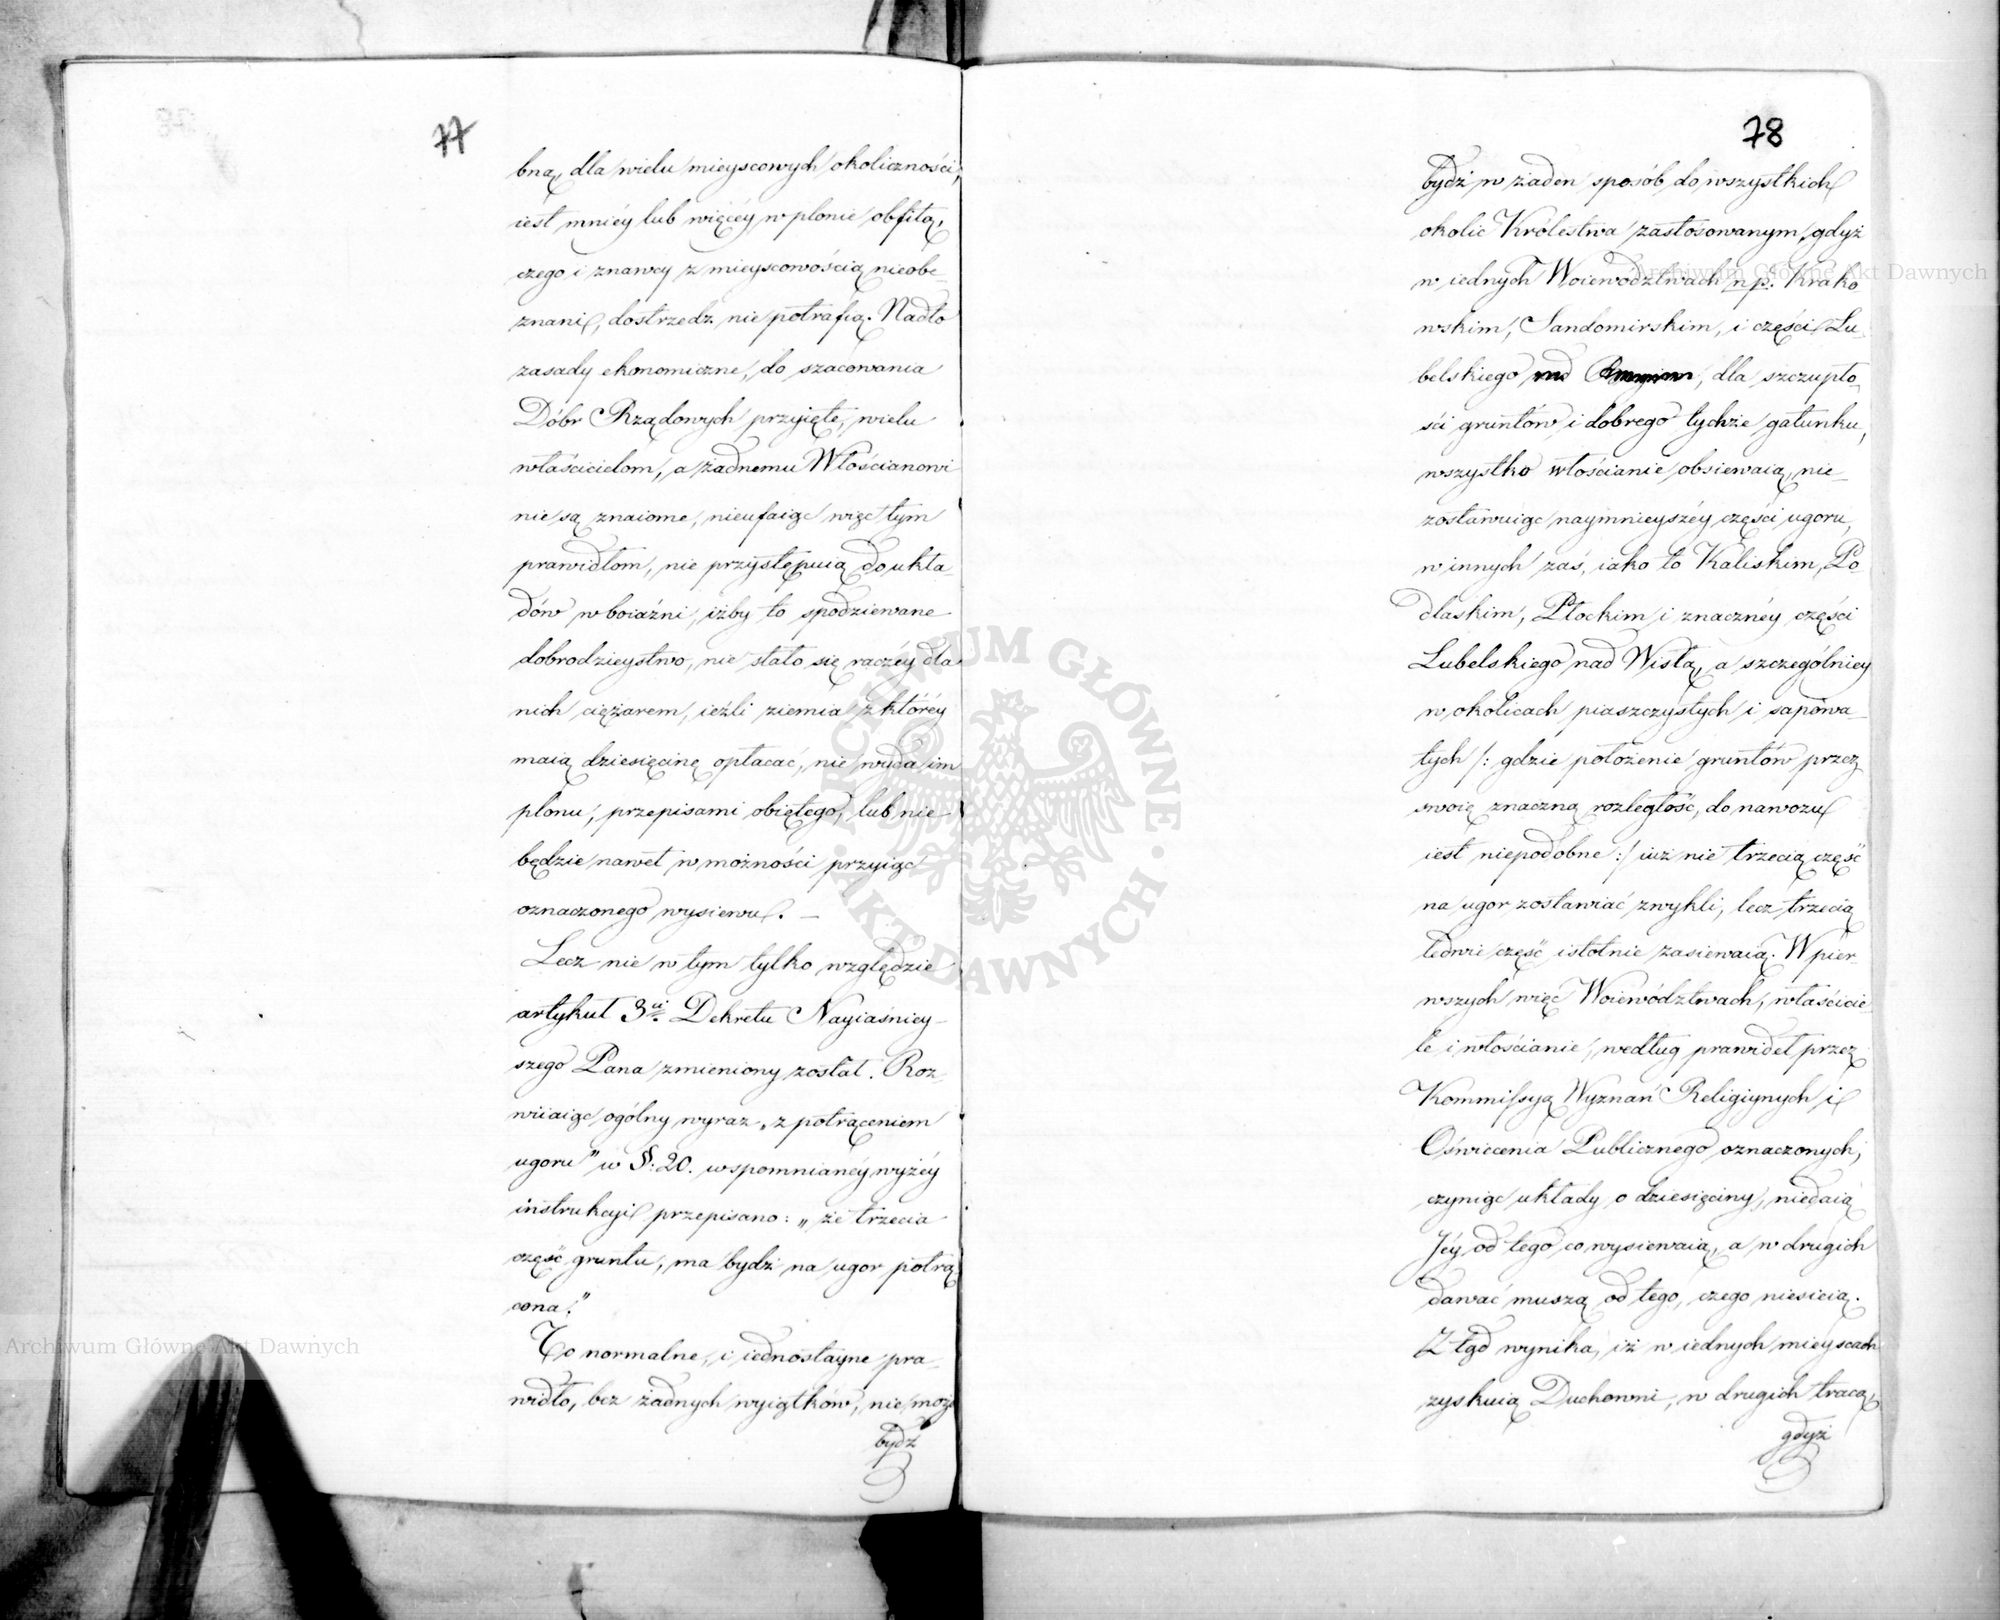 77
bną, dla wielu mieyscowych okoliczności,
iest mniéy lub więcéy w plonie obfitą,
czego i znawcy z mieyscowością nieobe-
znani, dostrzedz nie potrafią. Nadto
zasady ekonomiczne, do szacowania
Dóbr Rządowych przyięte, wielu
właścicielom, a żadnemu Włościanowi
nie są znaiome, nieufaiąc więc tym
prawidłom, nie przystępuią do ukła-
dów w boiaźni, iżby to spodziewane
dobrodzieystwo, nie stało się raczéy dla
nich ciężarem, ieżli ziemia z któréy
maią dziesięcinę opłacać, nie wyda im
plonu, przepisami obiętego, lub nie
będzie nawet w możności przyiąć
oznaczonego wysiewu. —
Lecz nie w tym tylko względzie
artykuł 3ci. Dekretu Nayiaśniey-
szego Pana zmieniony został. Roz-
wiiaiąc ogólny wyraz „z potrąceniem
ugoru” w §: 20. wspomnianéy wyżéy
instrukcyi przepisano: „że trzecia
część gruntu, ma bydź na ugor potrą-
cona.”
To normalne, i iednostayne pra-
widło, bez żadnych wyiątków, nie może
bydź
78
bydź w żaden sposób do wszystkich
okolic Królestwa zastosowanym, gdyż
w iednych Woiewództwach np. Krako-
wskim, Sandomirskim, i części Lu-
belskiego nad, dla szczupło-
ści gruntów i dobrego tychże gatunku,
wszystko włościanie obsiewaią, nie-
zostawuiąc naymnieyszéy części ugoru,
w innych zaś, iako to Kaliskim, Po-
dlaskim, Płockim i znacznéy części
Lubelskiego nad Wisłą, a szczególniey
w okolicach piaszczystych i sapowa-
tych /: gdzie położenie gruntów przez
swoię znaczną rozległość, do nawozu
iest niepodobne :/ iuż nie trzecią część
na ugor zostawiać zwykli, lecz trzecią
ledwie część istotnie zasiewaią. W pier-
wszych więc Woiewództwach, właścicie-
le i włościanie, według prawideł przez
Kommissyą Wyznań Religiynych i
Oświecenia Publicznego oznaczonych,
czyniąc układy o dziesięciny, niedaią
Jéy od tego co wysiewaią, a w drugich
dawać muszą od tego, czego niesieią.
Z tąd wynika, iż w iednych mieyscach
zyskuią Duchowni, w drugich tracą,
gdyż
Archiwum Główne Akt Dawnych
Archiwum Główne Akt Dawnych
ARCHIWUM GŁÓWNE · AKT DAWNYCH ·